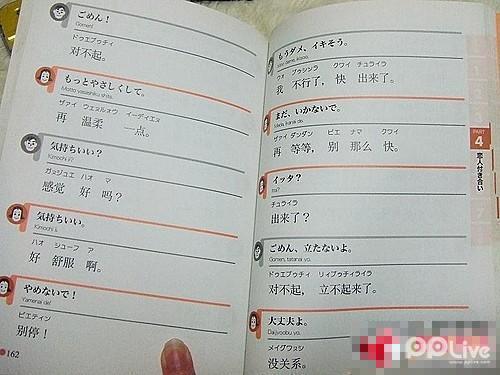 ごめん!
Gomen!
ドゥエブゥチィ
对不起。
もっとやさしくして。
Motto yasashiku shite.
ザァイ ウェンルォウ イーディエン
再 温柔 一点。
気持ちいい?
Kimochi ii?
ガンジュエ ハオ マ
感觉 好 吗?
気持ちいい。
Kimochi ii.
ハオ シューフ ア
好 舒服 啊。
やめないで!
Yamenai de!
ビエティン
别停!
162
もうダメ、イキそう。
Mou dame, ikisou.
ウオ ブゥシンラ クワイ チュライラ
我 不行了, 快 出来了。
まだ、いかないで。
Mada, ikanai de.
ザァイ ダンダン ビエ ナマ クワイ
再 等等, 别 那么 快。
イッタ?
Itta?
チュライラ
出来了?
ごめん、立たないよ。
Gomen, tatanai yo.
ドゥエブゥチィ リィブゥチィライラ
对不起, 立不起来了。
大丈夫よ。
Daijyoubu yo.
メイグワンシ
没关系。
PART
4
恋人付き合い
PPLive